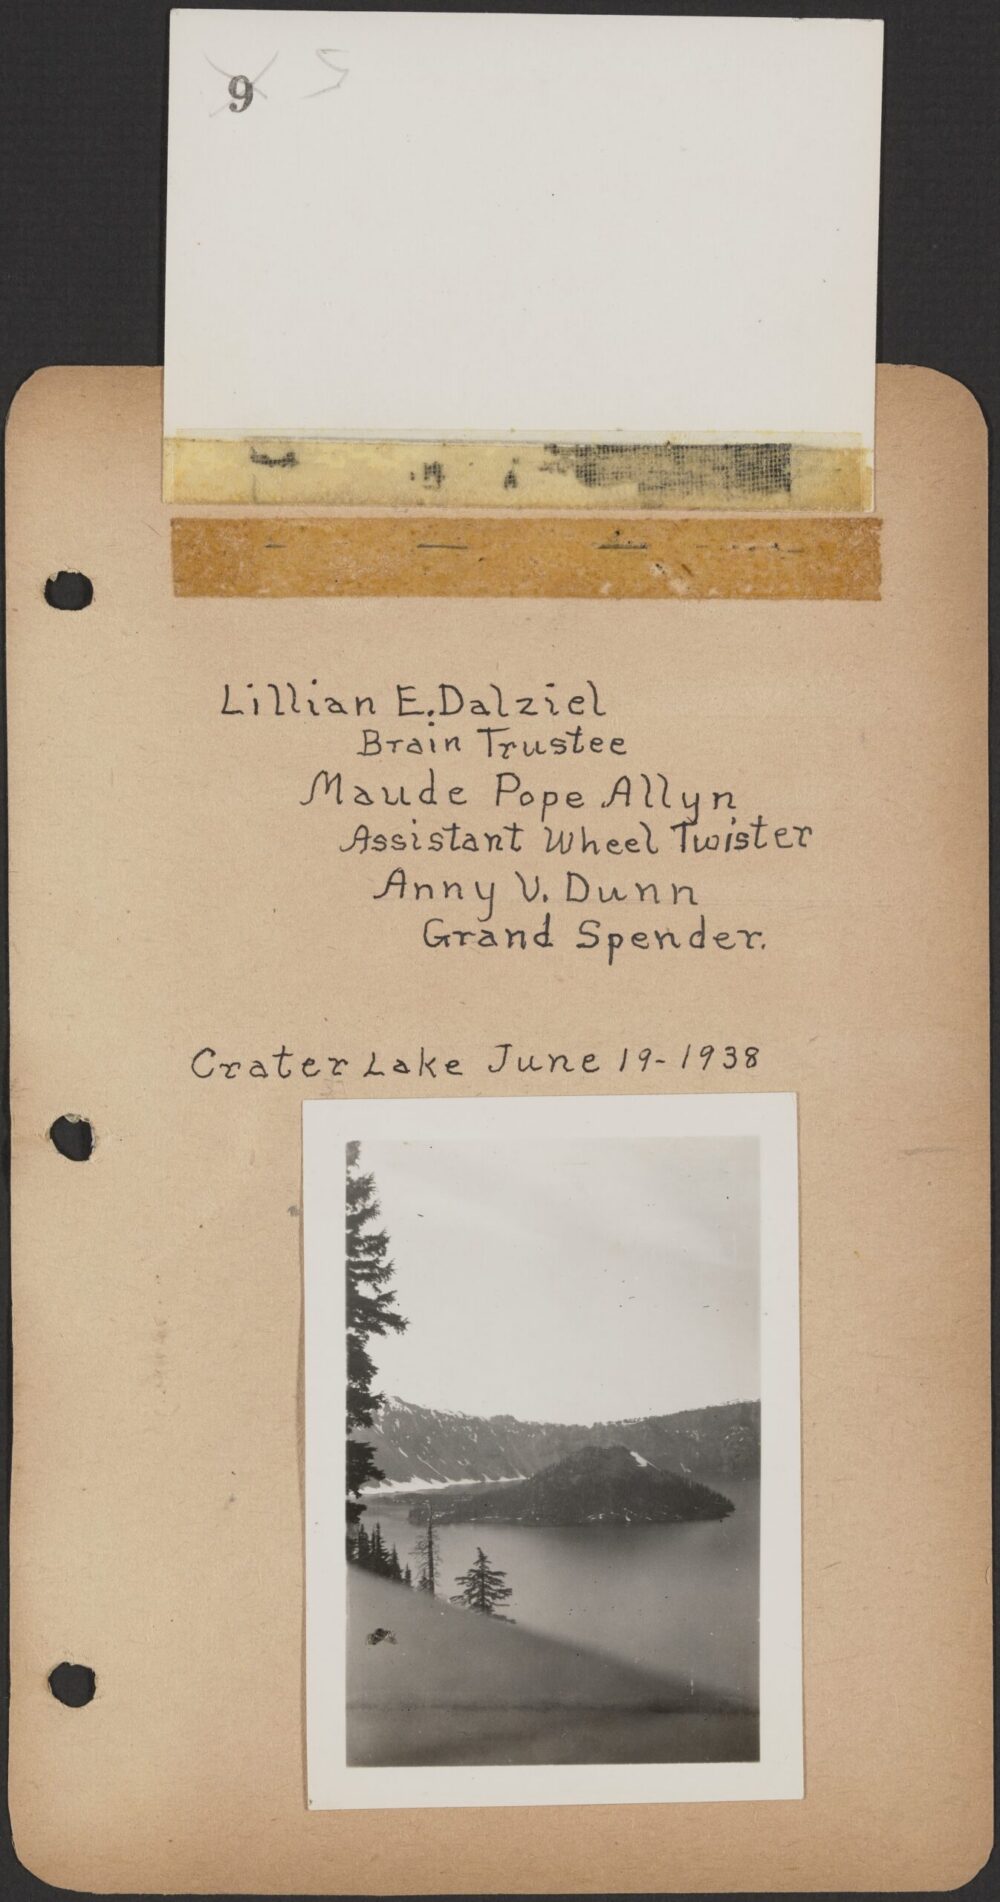 9 5
Lillian E. Dalziel
Brain Trustee
Maude Pope Allyn
Assistant Wheel Twister
Anny V. Dunn
Grand Spender.
Crater Lake June 19-1938